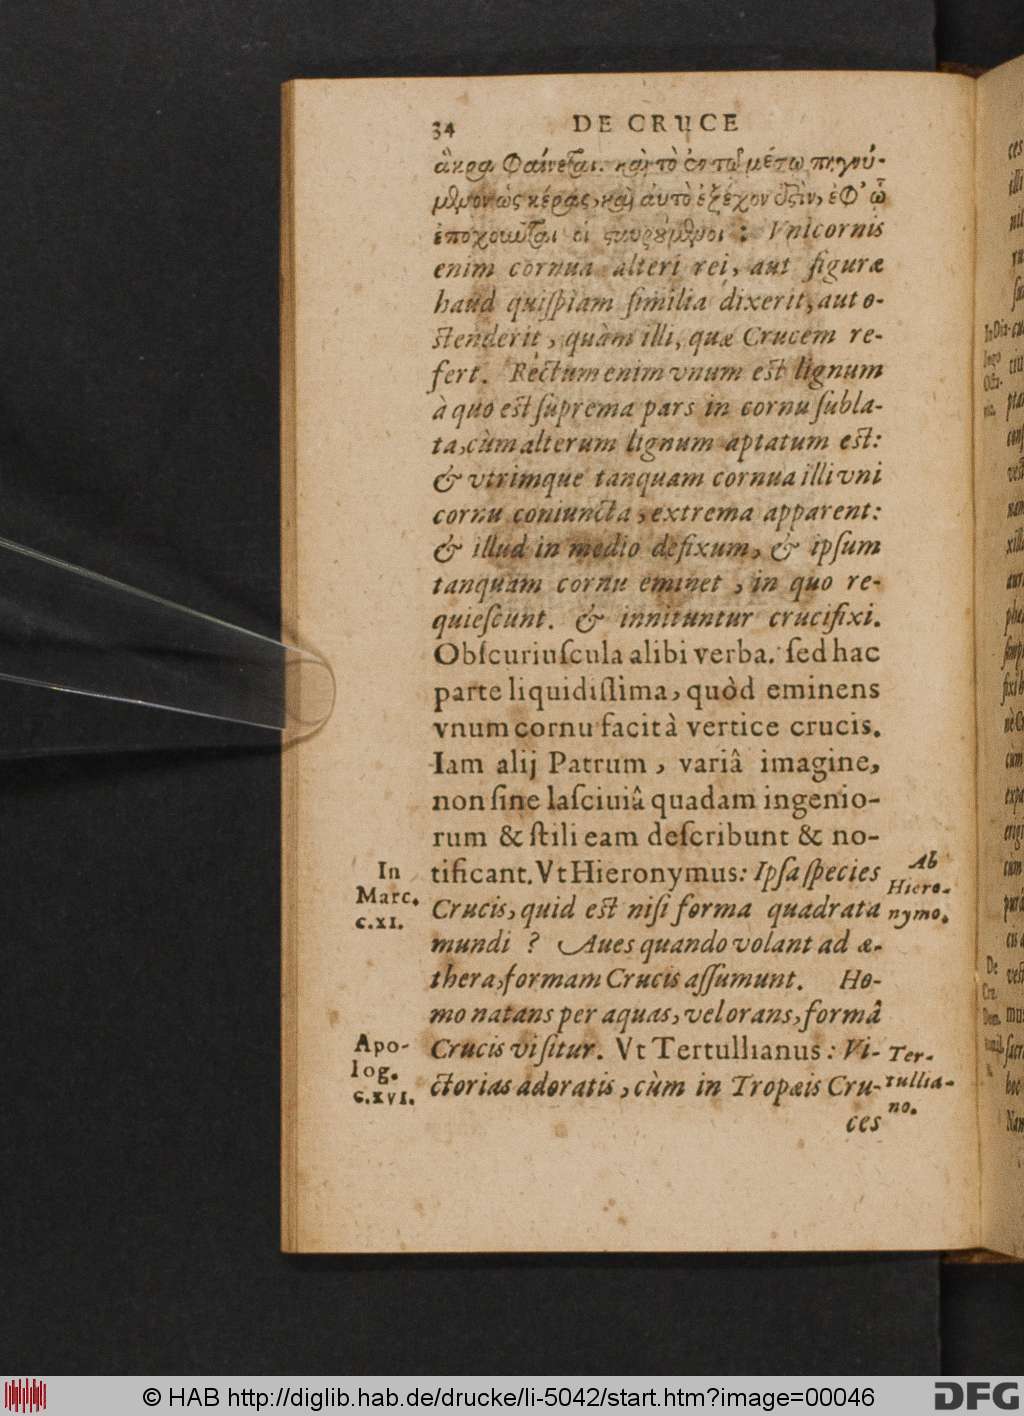 34 DE CRUCE
ἄκρα φαίνεται. καὶ τὸ ἐν τῷ μέσῳ πηγνύ-
μενον ὡς κέρας, καὶ αὐτὸ ἐξέχον ἐστὶν, ἐφ' ᾧ
ἐποχοῦνται οἱ σταυρούμενοι : Vnicornis
enim cornua alteri rei, aut figuræ
haud quiſpiam ſimilia dixerit, aut o-
ſtenderit, quàm illi, quæ Crucem re-
fert. Rectum enim vnum eſt lignum
à quo eſt ſuprema pars in cornu ſubla-
ta, cùm alterum lignum aptatum eſt:
& vtrimque tanquam cornua illi vni
cornu coniuncta, extrema apparent:
& illud in medio defixum, & ipſum
tanquam cornu eminet, in quo re-
quieſcunt. & innituntur crucifixi.
Obſcuriuſcula alibi verba. ſed hac
parte liquidiſſima, quòd eminens
vnum cornu facit à vertice crucis.
Iam alij Patrum, variâ imagine,
non ſine laſciuiâ quadam ingenio-
rum & ſtili eam deſcribunt & no-
tificant. Vt Hieronymus: Ipſa ſpecies
Crucis, quid eſt niſi forma quadrata
mundi ? Aues quando volant ad æ-
thera, formam Crucis aſſumunt. Ho-
mo natans per aquas, vel orans, formâ
Crucis viſitur. Vt Tertullianus: Vi-
ctorias adoratis, cùm in Tropæis Cru-
ces
In
Marc.
c.XI.
Apo-
log.
c.XVI.
Ab
Hiero-
nymo.
Ter-
tullia-
no.
© HAB http://diglib.hab.de/drucke/li-5042/start.htm?image=00046
DFG